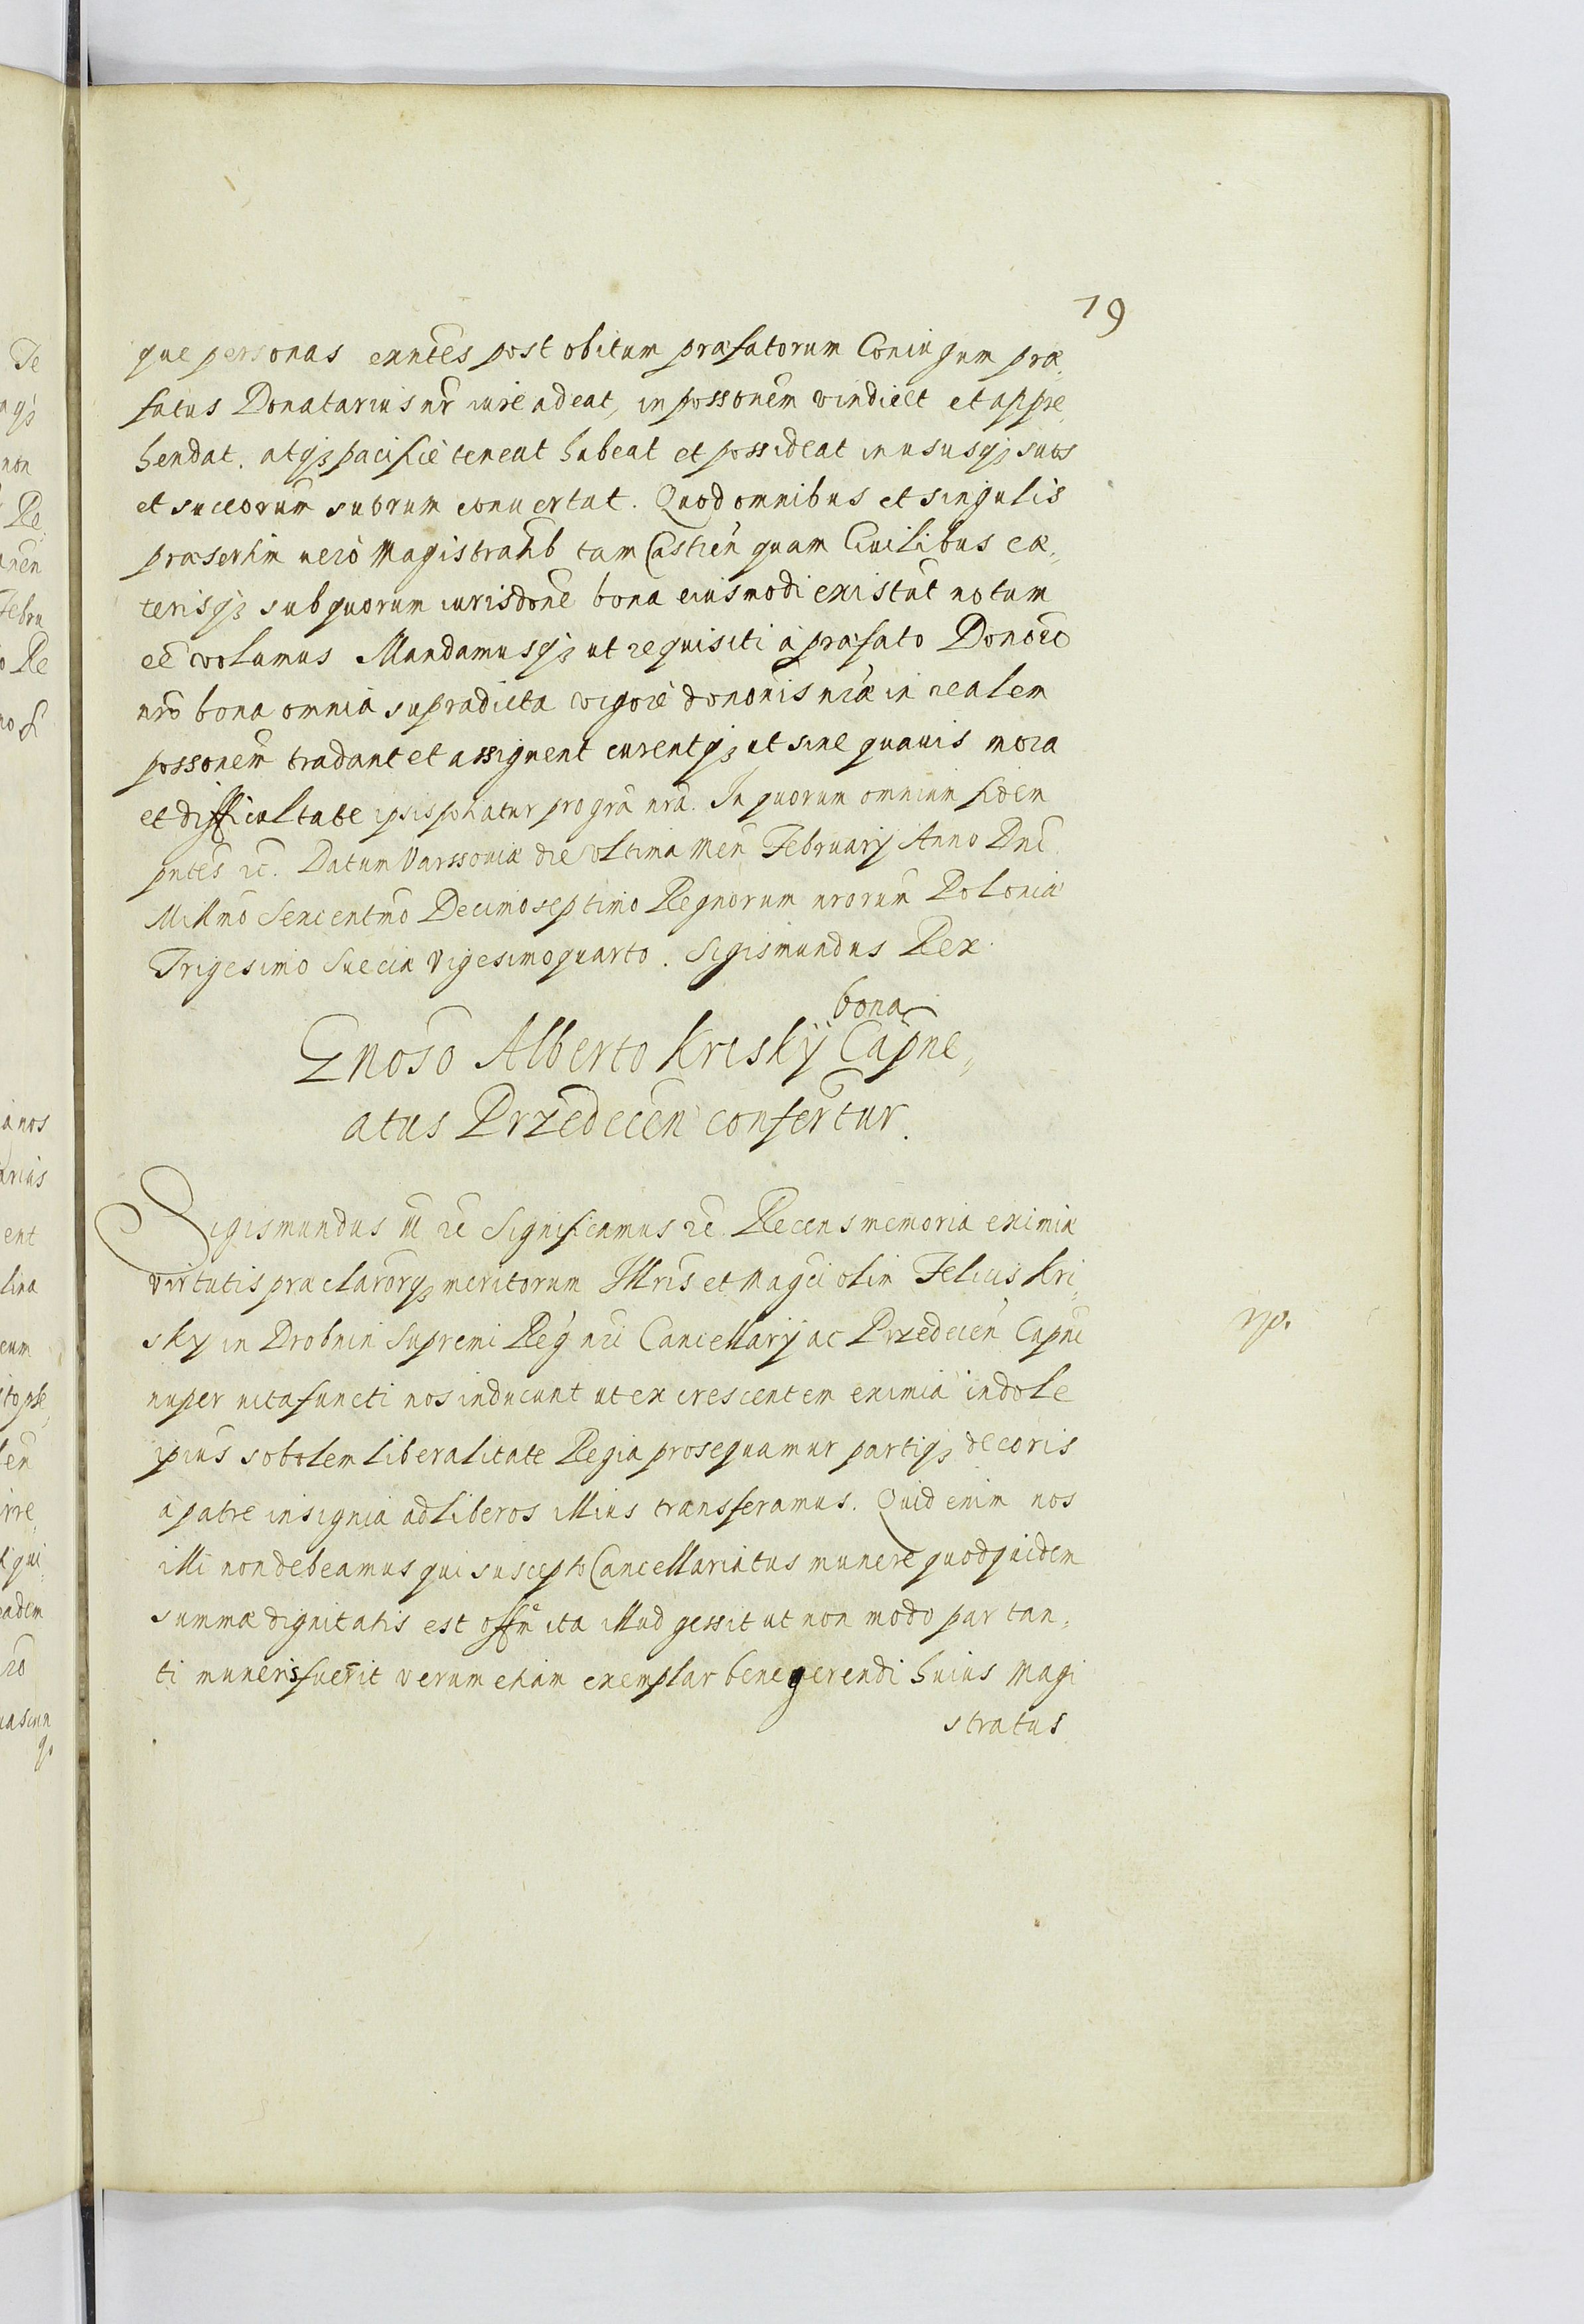 19
que personas exntes post obitum præfatorum Coniugum præ„
fatus Donatarius nr iure adeat, in possonem vindicet et appre„
hendat. atqꝫ pacificè teneat habeat et possideat in ususqꝫ suos
et succorum suorum conuertat. Quod omnibus et singulis
præsertim uerò Magistratib tam Castren quam Ciuilibus cæ„
terisqꝫ sub quorum iurisdone bona eiusmodi existut notum
eē volumus Mandamusqꝫ ut requisiti à præfato Donorio
nro bona omnia supradicta vigore dononis nræ in realem
possonem tradant et assignent curentqꝫ ut sine quauis mora
et difficultate ipsis potiatur pro gra nra. In quorum omnium fidem
pntes rc. Datum Varssoviæ die ultima Men Februarij Anno Dni
Millmo Sexcentmo Decimoseptimo Regnorum nrorum Poloniæ
Trigesimo Sueciæ Vigesimoquarto. Sigismundus Rex.
bona
Gnoso Alberto Krisky Capne„
atus Przedecen confertur.
Sigismundus III rc Significamus rc. Recens memoria eximiæ
virtutis præclarorqꝫ meritorum Illris et Magci olim Felicis Kri„
sky in Drobnin Supremi Reg nri Cancellarij ac Przedecen Capnei
nuper uita functi nos inducunt ut excrescentem eximia indole
ipius sobolem liberalitate Regia prosequamur partiqꝫ decoris
à patre insignia ad liberos illius transferamus. Quid enim nos
illi non debeamus qui suscepto Cancellariatus munere quod quidem
summæ dignitatis est offm ita illud gessit ut non modo par tan„
ti muneris fuerit verum etiam exemplar bene gerendi huius Magi
stratus